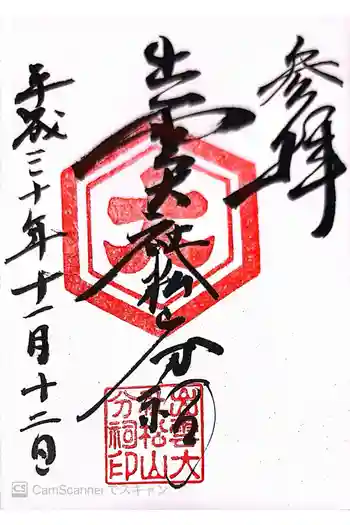 参拝
出雲大社松山分祠
平成三十年十一月十二日
出雲大
社松山
分祠印
CS CamScanner でスキャン